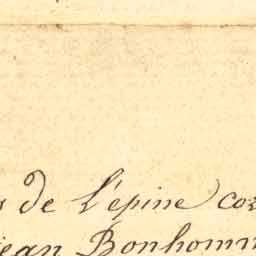 de l'épine
jean Bonhomm